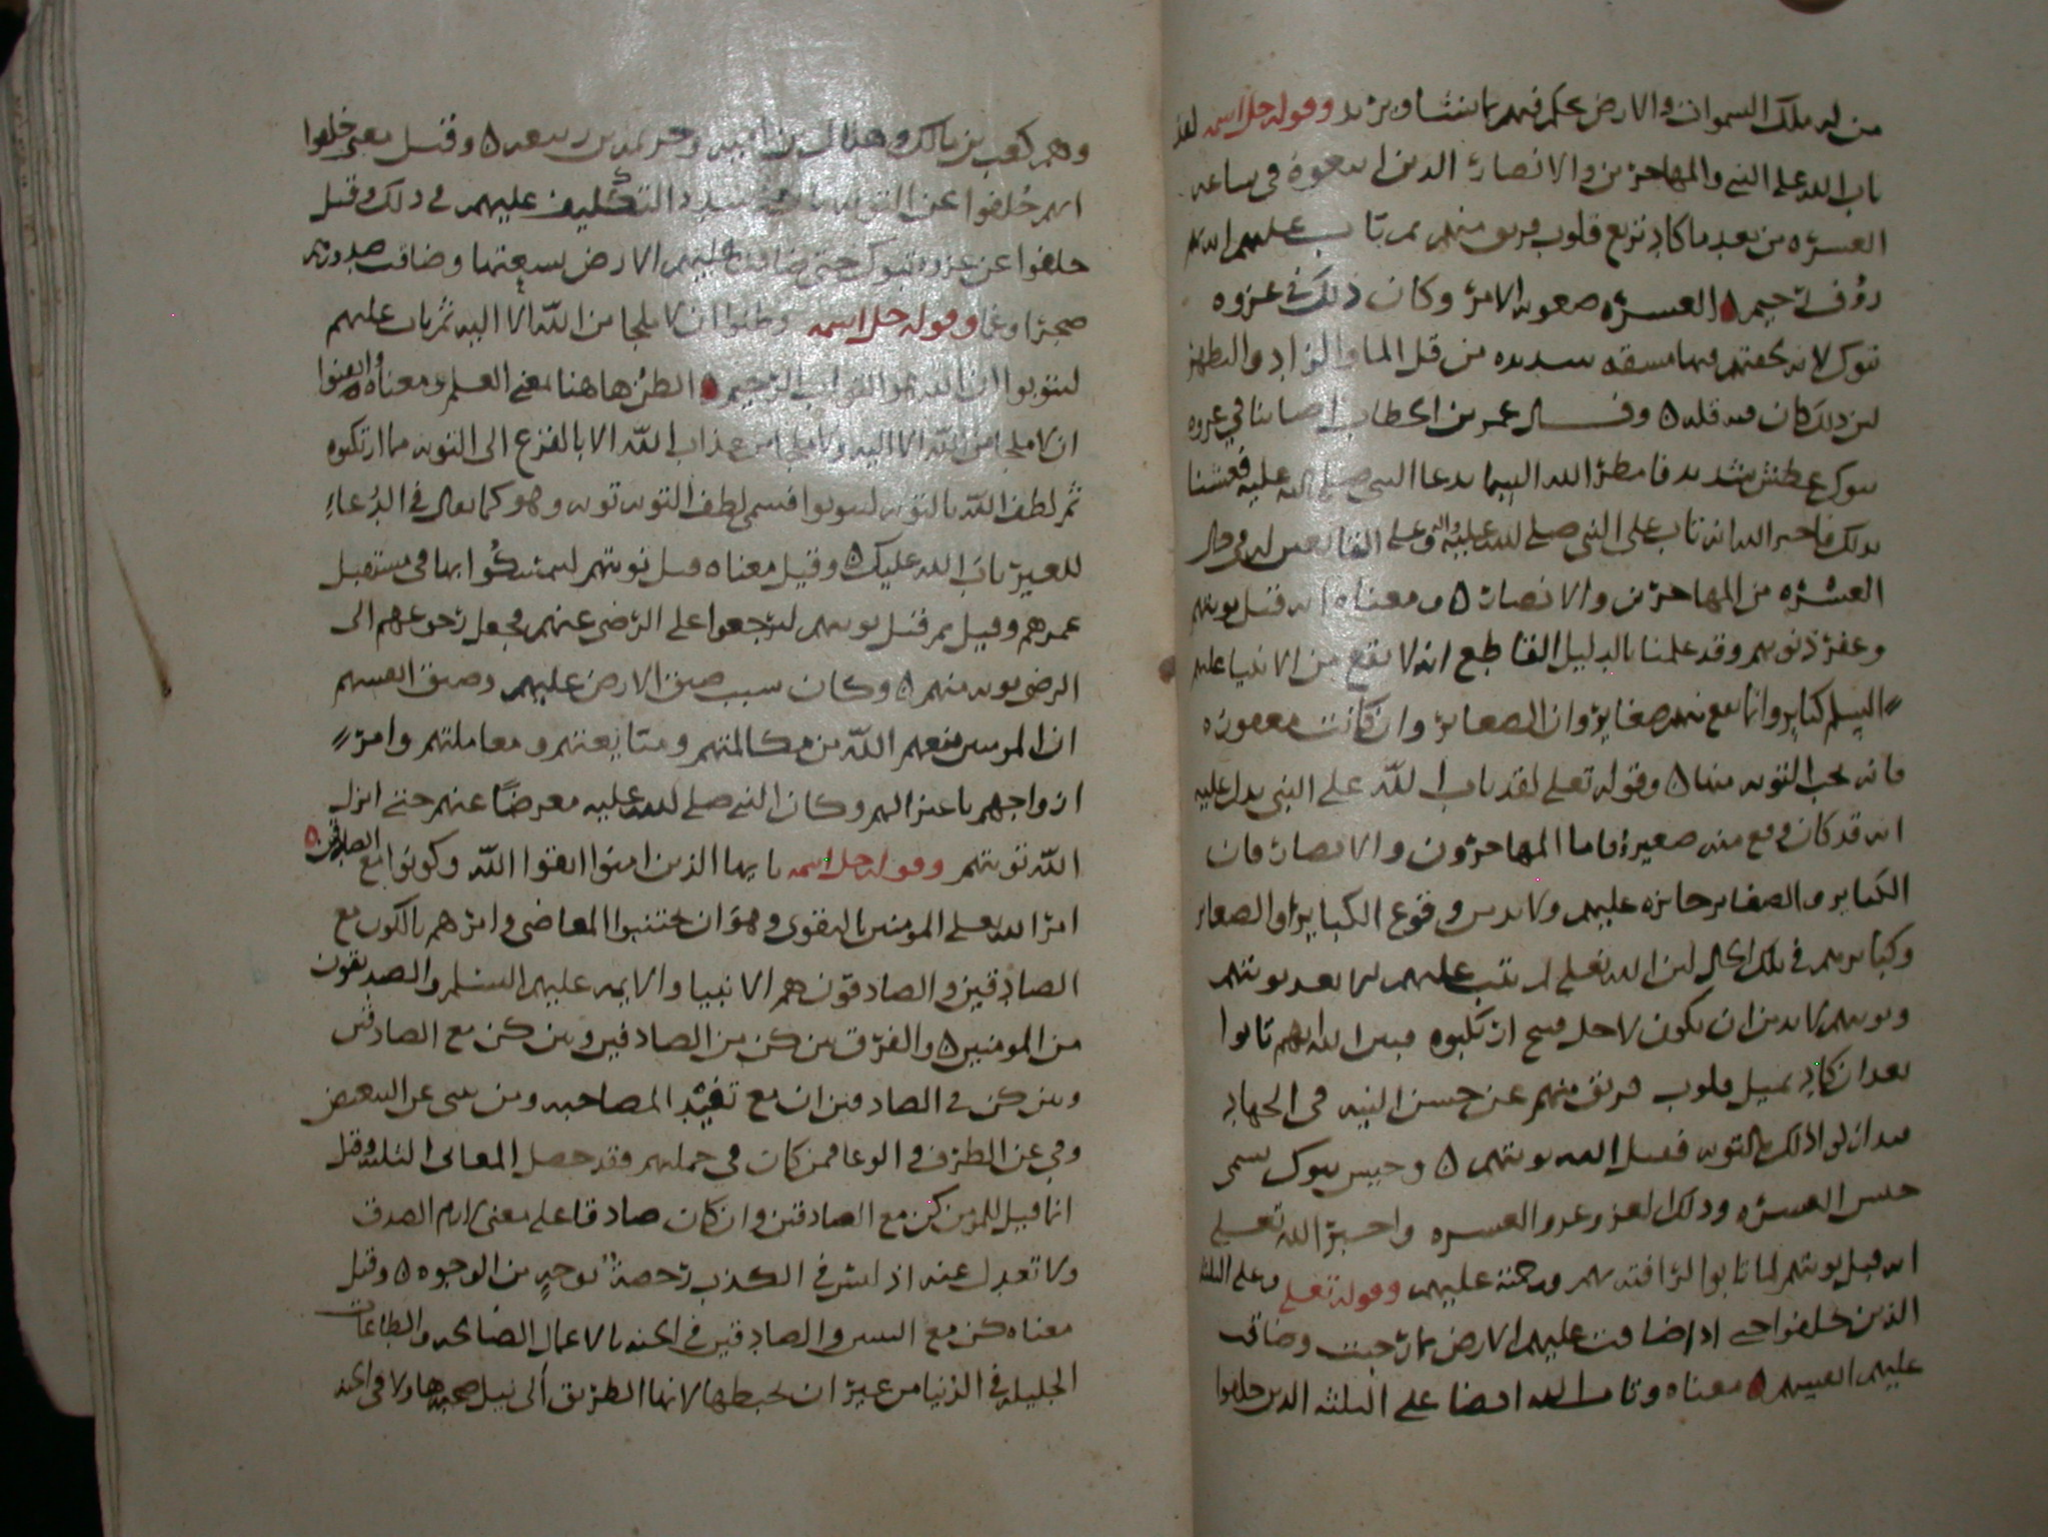 من له ملك السموات والارض يحكم فيهم بما يشا ويريد وقوله جل اسمه لقد
تاب الله على النبي والمهاجرين والانصار الذين اتبعوه في ساعة
العسرة من بعد ما كاد تزيغ قلوب فريق منهم ثم تاب عليهم انه بهم
رؤف رحيم ه العسرة صعوبة الامر وكان ذلك في غزوة
تبوك لانه لحقتهم فيها مشقة شديدة من قلة الما والزاد والظهر
لان ذلك كان فيه قلة ه وقال عمر بن الخطاب اصابنا في غزوة
تبوك عطش شديد فامطر الله السما بدعا النبي صلى الله عليه فعشنا
بذلك فاخبر الله انه تاب على النبي صلى الله عليه واله وعلى التابعين له في حال
العسرة من المهاجرين والانصار ه ومعناه انه قبل توبتهم
وغفر ذنوبهم وقد علمنا بالدليل القاطع انه لا يقع من الانبيا عليهم
السلم كباير وانما يقع منهم صغاير وان الصغاير وان كانت مغفورة
فانه تجب التوبة منها ه وقوله تعلى لقد تاب الله على النبي يدل عليه
انه قد كان وقع منه صغيرة فاما المهاجرون والانصار فان
الكباير والصغاير جايزة عليهم ولا بد من وقوع الكباير او الصغاير
وكبايرهم في تلك الحال لان الله تعلى لم يتب عليهم الا بعد توبتهم
وتوبتهم لا بد من ان تكون لاجل قبيح ارتكبوه فبين الله انهم تابوا
بعد ان كاد يميل قلوب فريق منهم عن حسن النية في الجهاد
ذلك بالتوبة فقبل الله توبتهم ه وجيش تبوك يسمى
جيش العسرة وذلك الغزو غزو العسرة واخبر الله تعلى
انه قبل توبتهم لما تابوا لرافته بهم ورحمته عليهم وقوله تعلى وعلى الثلثة
الذين خلفوا حتى اذا ضاقت عليهم الارض بما رحبت وضاقت
عليهم انفسهم ه معناه وتاب الله ايضا على الثلثة الذين خلفوا
وهم كعب بن مالك وهلال بن امية و بن ربيعة ه وقيل معنى خلفوا
انهم خلفوا عن التوبة التكليف عليهم في ذلك وقيل
خلفوا عن غزوة تبوك حتى ضاقت عليهم الارض بسعتها وضاقت صدورهم
ضجرا وغما وقوله جل اسمه وظنوا ان لا ملجا من الله الا اليه ثم تاب عليهم
ليتوبوا ان الله هو التواب الرحيم ه الظن هاهنا معنى العلم ومعناه وايقنوا
ان لا ملجا من الله الا اليه ولا ملجا من عذاب الله الا بالفزع الى التوبة مما ارتكبوه
ثم لطف الله بالتوبة ليتوبوا فسمى لطف التوبة توبة وهو كما يقال في الدعاء
للغير تاب الله عليك ه وقيل معناه قبل توبتهم ليتمسكوا بها في مستقبل
عمرهم وقيل ثم قبل توبتهم ليرجعوا على الرضى عنهم فجعل رجوعهم الى
الرضى توبة منهم ه وكان سبب ضيق الارض عليهم وضيق انفسهم
ان المومنين منعهم الله من مكالمتهم ومتابعتهم ومعاملتهم وامر
ازواجهم باعتزالهم وكان النبي صلى الله عليه معرضا عنهم حتى انزل
الله توبتهم وقوله جل اسمه يا يها الذين امنوا اتقوا الله وكونوا مع الصادقين ه
امر الله تعلى المومنين بالتقوى وهو ان يجتنبوا المعاصي وامرهم بالكون مع
الصادقين والصادقون هم الانبيا والايمة عليهم السلم والصديقون
من المومنين ه والفرق بين كن من الصادقين وبين كن مع الصادقين
وبين كن في الصادقين ان مع تفيد المصاحبة ومن تنبي عن التبعيض
وفي عن الظرف في الوعا فمن كان في جملتهم فقد حصل المعاني الثلثة وقيل
انما قيل للمومن كن مع الصادقين وان كان صادقا على معنى الزم الصدق
ولا تعدل عنه اذ ليس في الكذب رخصة بوجه من الوجوه ه وقيل
معناه كن مع النبيين والصادقين في الجنة بالاعمال الصالحة والطاعات
الجليلة في الدنيا من غير ان تحبطها لانها الطريق الى نيل صحبتها ولا في الجنة